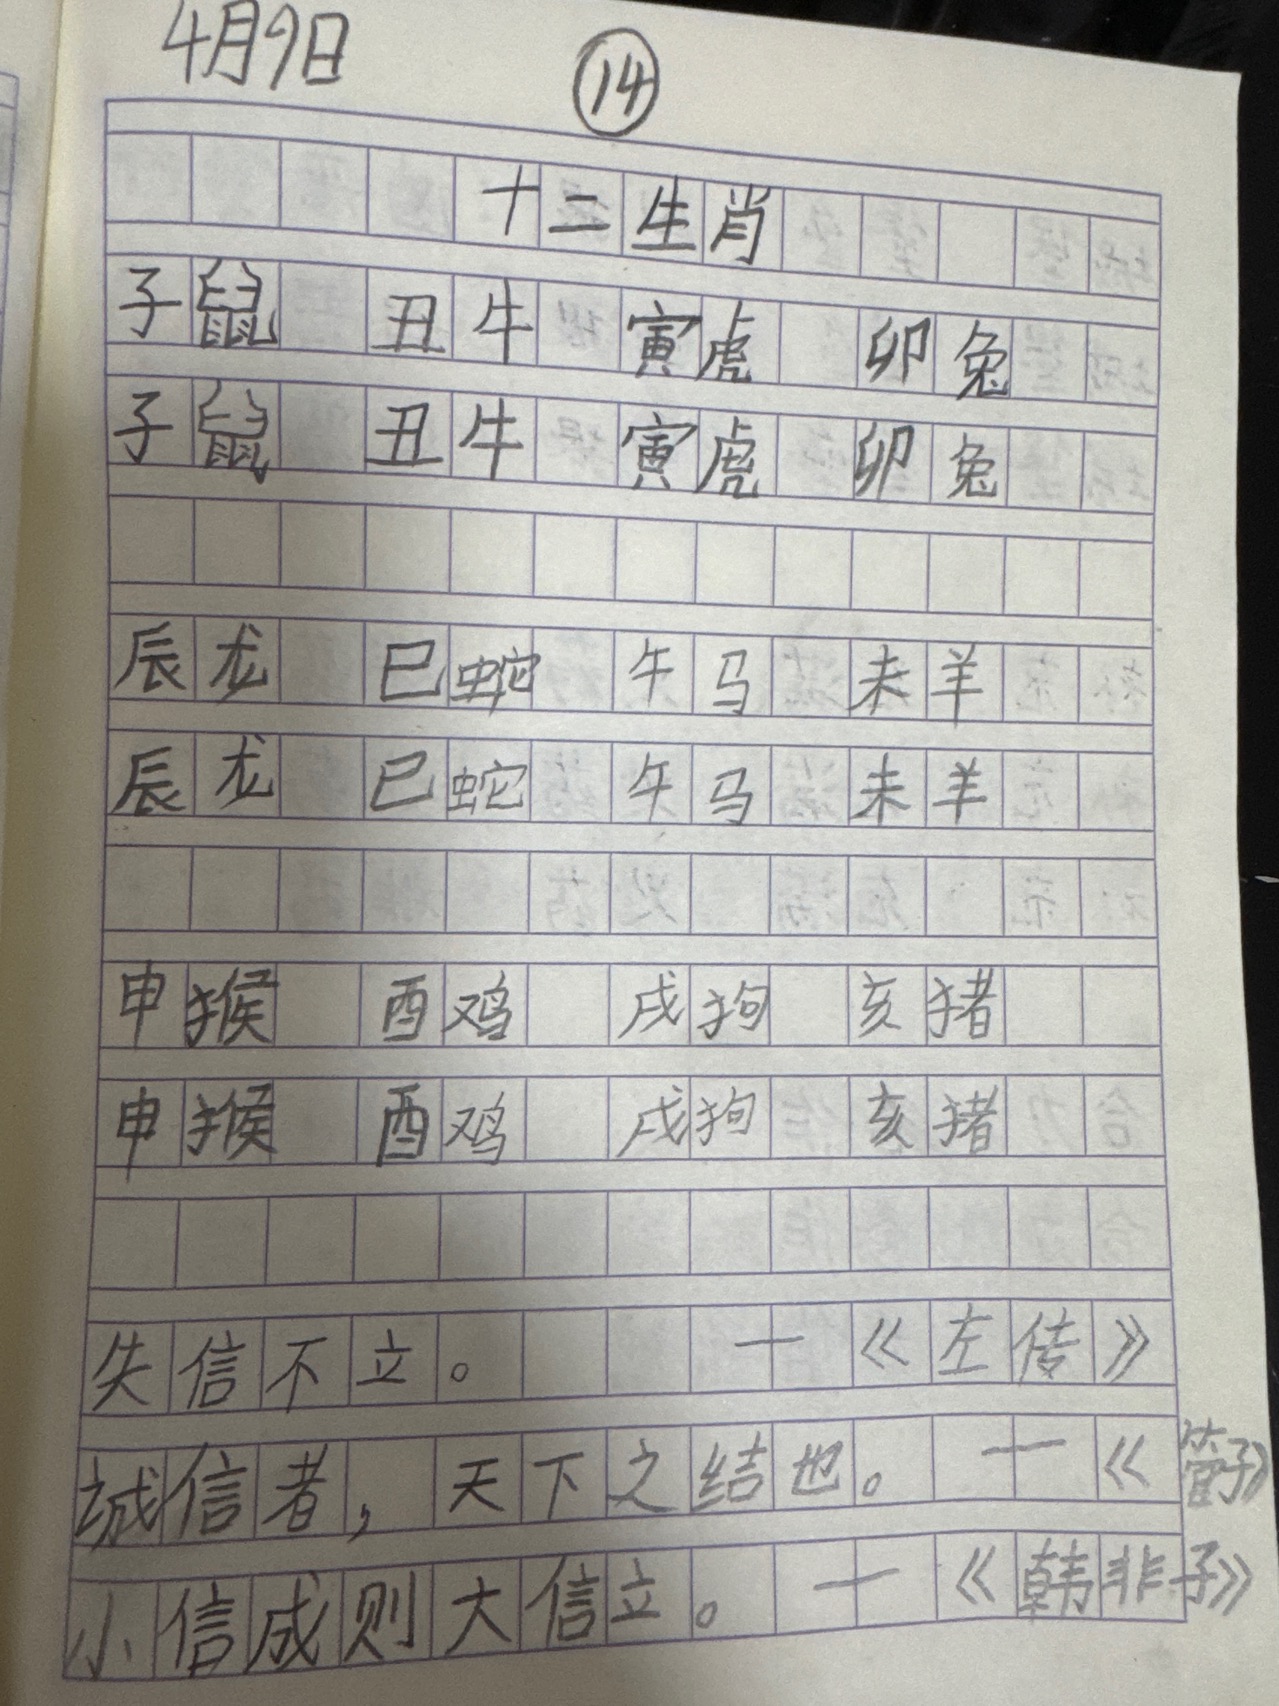 4月9日 ⑭
十二生肖
子鼠 丑牛 寅虎 卯兔
子鼠 丑牛 寅虎 卯兔
辰龙 巳蛇 午马 未羊
辰龙 巳蛇 午马 未羊
申猴 酉鸡 戌狗 亥猪
申猴 酉鸡 戌狗 亥猪
失信不立。 —《左传》
诚信者，天下之结也。 —《管子》
小信成则大信立。 —《韩非子》